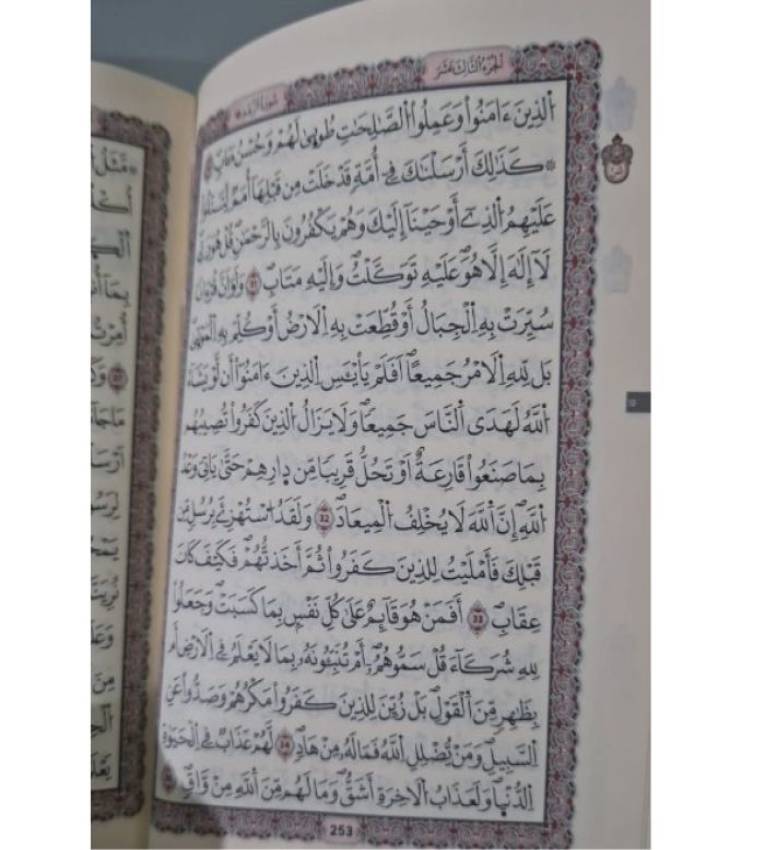 الجزء الثالث عشر
سورة الرعد
اَ۬لذِينَ ءَامَنُواْ وَعَمِلُواْ اُ۬لصَّٰلِحَٰتِ طُوبۭيٰ لَهُمْ وَحُسْنُ مَـَٔابٖۖ
۞كَذَٰلِكَ أَرْسَلْنَٰكَ فِےٓ أُمَّةٖ قَدْ خَلَتْ مِن قَبْلِهَآ أُمَمٞ لِّتَتْلُوَاْ
عَلَيْهِمُ اُ۬لذِےٓ أَوْحَيْنَآ إِلَيْكَ وَهُمْ يَكْفُرُونَ بِالرَّحْمَٰنِۖ قُلْ هُوَ رَبِّے
لَآ إِلَٰهَ إِلَّا هُوَۖ عَلَيْهِ تَوَكَّلْتُ وَإِلَيْهِ مَتَابِۖ 31 وَلَوَ اَنَّ قُرْءَاناٗ
سُيِّرَتْ بِهِ اِ۬لْجِبَالُ أَوْ قُطِّعَتْ بِهِ اِ۬لَارْضُ أَوْ كُلِّمَ بِهِ اِ۬لْمَوْتۭيٰ
بَل لِّلهِ اِ۬لَامْرُ جَمِيعاًۖ اَفَلَمْ يَاْيْـَٔسِ اِ۬لذِينَ ءَامَنُوٓاْ أَن لَّوْ يَشَآءُ
اُ۬للَّهُ لَهَدَي اَ۬لنَّاسَ جَمِيعاٗۖ وَلَا يَزَالُ اُ۬لذِينَ كَفَرُواْ تُصِيبُهُم
بِمَا صَنَعُواْ قَارِعَةٌ اَوْ تَحُلُّ قَرِيباٗ مِّن دِارِهِمْ حَتَّيٰ يَاتِيَ وَعْدُ
اُ۬للَّهِۖ إِنَّ اَ۬للَّهَ لَا يُخْلِفُ اُ۬لْمِيعَادَۖ 32 وَلَقَدُ اُ۟سْتُهْزِۓَ بِرُسُلٖ مِّن
قَبْلِكَ فَأَمْلَيْتُ لِلذِينَ كَفَرُواْ ثُمَّ أَخَذتُّهُمْۖ فَكَيْفَ كَانَ
عِقَابِۖ 33 أَفَمَنْ هُوَ قَآئِمٌ عَلَيٰ كُلِّ نَفْسِۢ بِمَا كَسَبَتْۖ وَجَعَلُواْ
لِلهِ شُرَكَآءَۖ قُلْ سَمُّوهُمُۥٓۖ أَمْ تُنَبِّـُٔونَهُۥ بِمَا لَا يَعْلَمُ فِے اِ۬لَارْضِ أَم
بِظَٰهِرٖ مِّنَ اَ۬لْقَوْلِۖ بَلْ زُيِّنَ لِلذِينَ كَفَرُواْ مَكْرُهُمْ وَصَدُّواْ عَنِ
اِ۬لسَّبِيلِۖ وَمَنْ يُّضْلِلِ اِ۬للَّهُ فَمَا لَهُۥ مِنْ هَادٖۖ 34 لَّهُمْ عَذَابٞ فِے اِ۬لْحَيَوٰةِ
اِ۬لدُّنْي۪اۖ وَلَعَذَابُ اُ۬لَاخِرَةِ أَشَقُّۖ وَمَا لَهُم مِّنَ اَ۬للَّهِ مِنْ وَّاقٖۖ
253